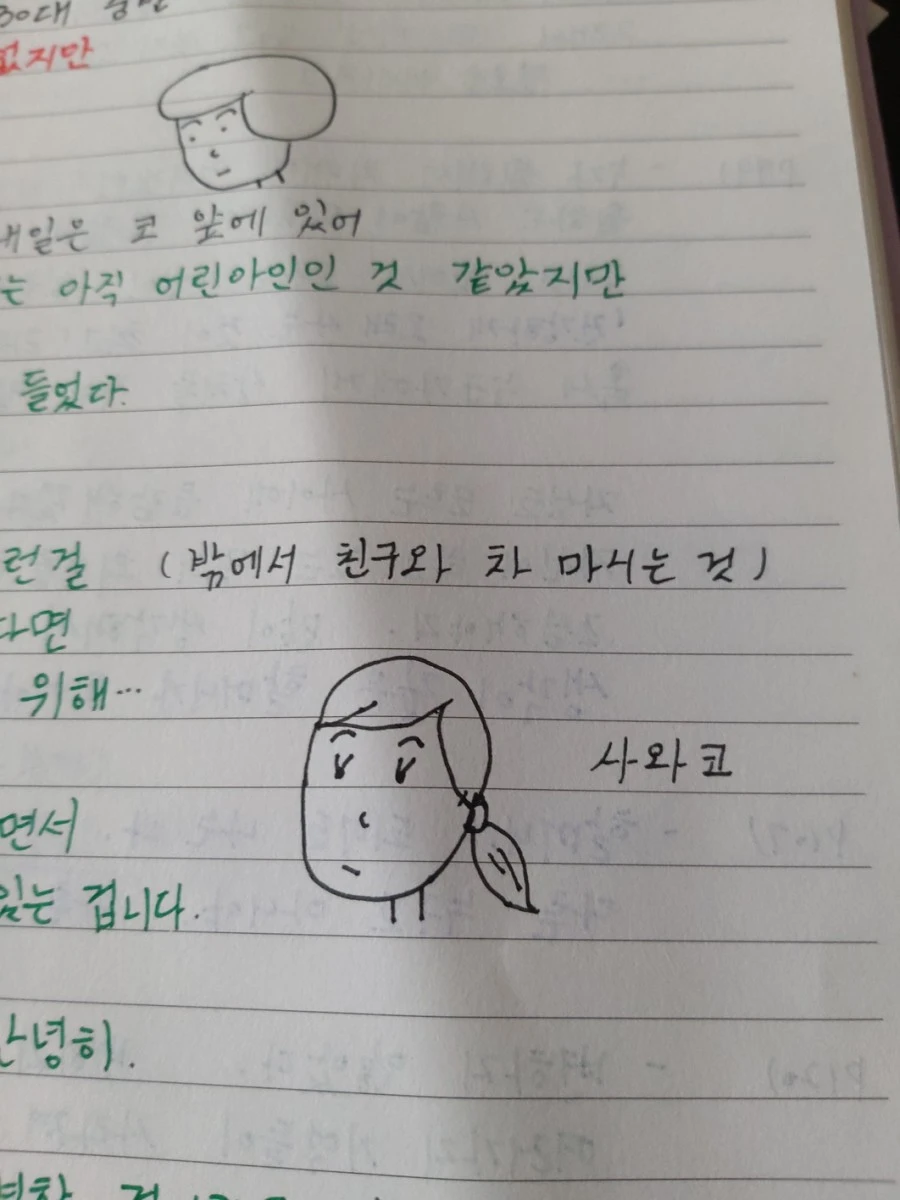 30대
없지만
내일은 코 앞에 있어
는 아직 어린아인인 것 같았지만
들었다.
런걸 (밖에서 친구와 차 마시는 것)
다면
위해...
사와코
면서
있는 겁니다.
안녕히.